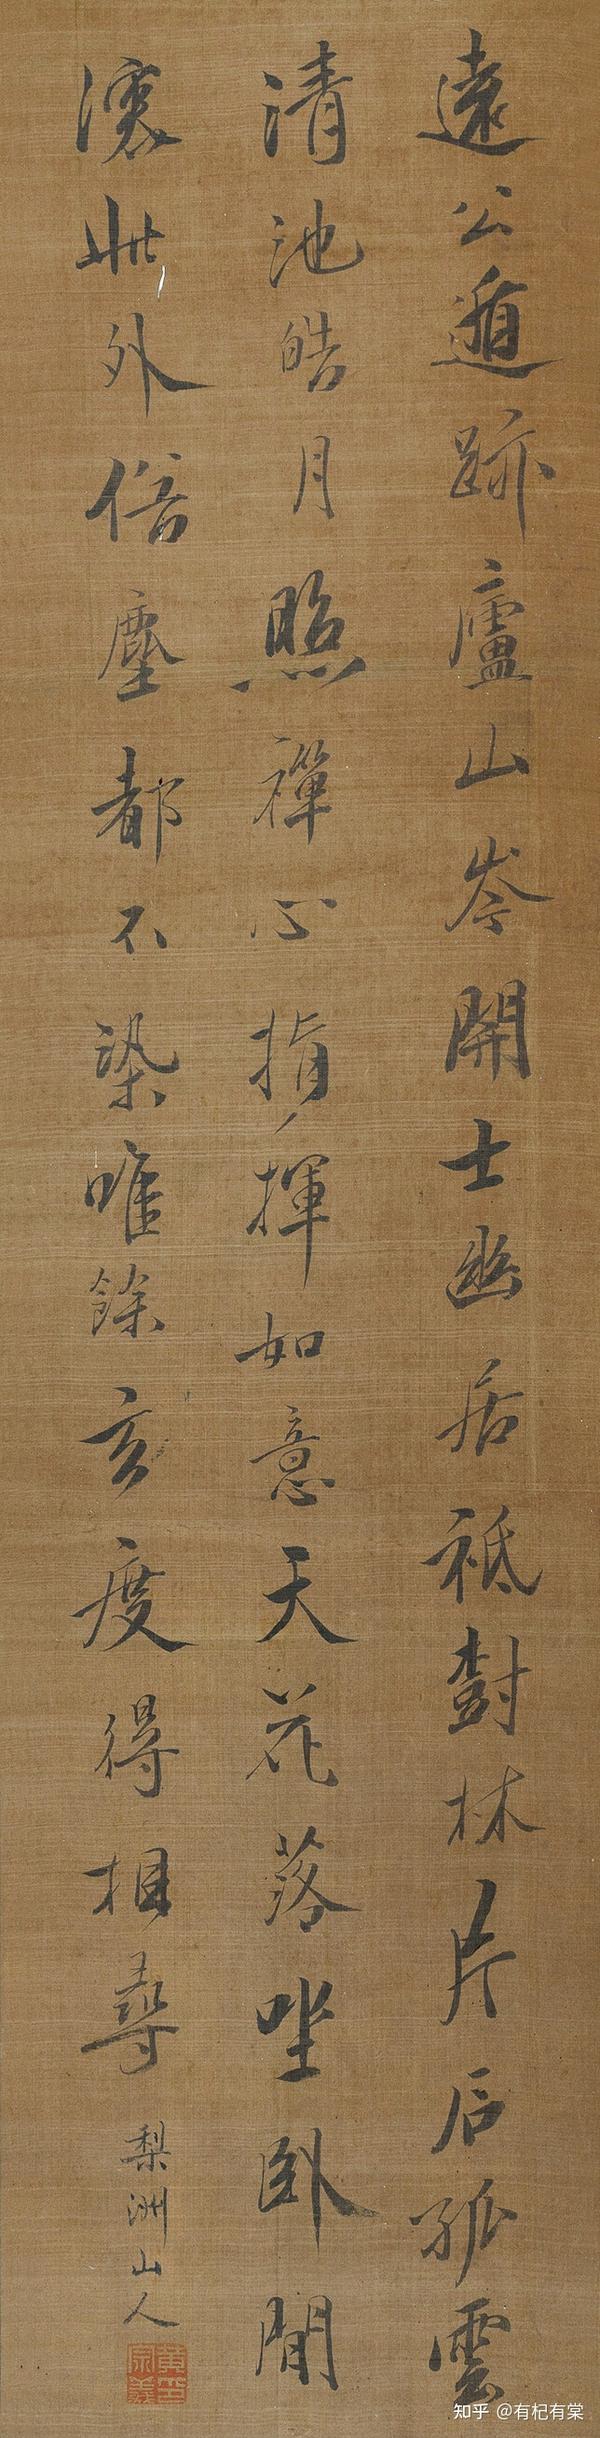 遠公遁跡廬山岑開士幽居祇樹林片石孤雲
清池皓月照禪心指揮如意天花落坐臥閒
深此外俗塵都不染唯餘玄度得相尋
梨洲山人
黃宗羲印
知乎 @有杞有棠